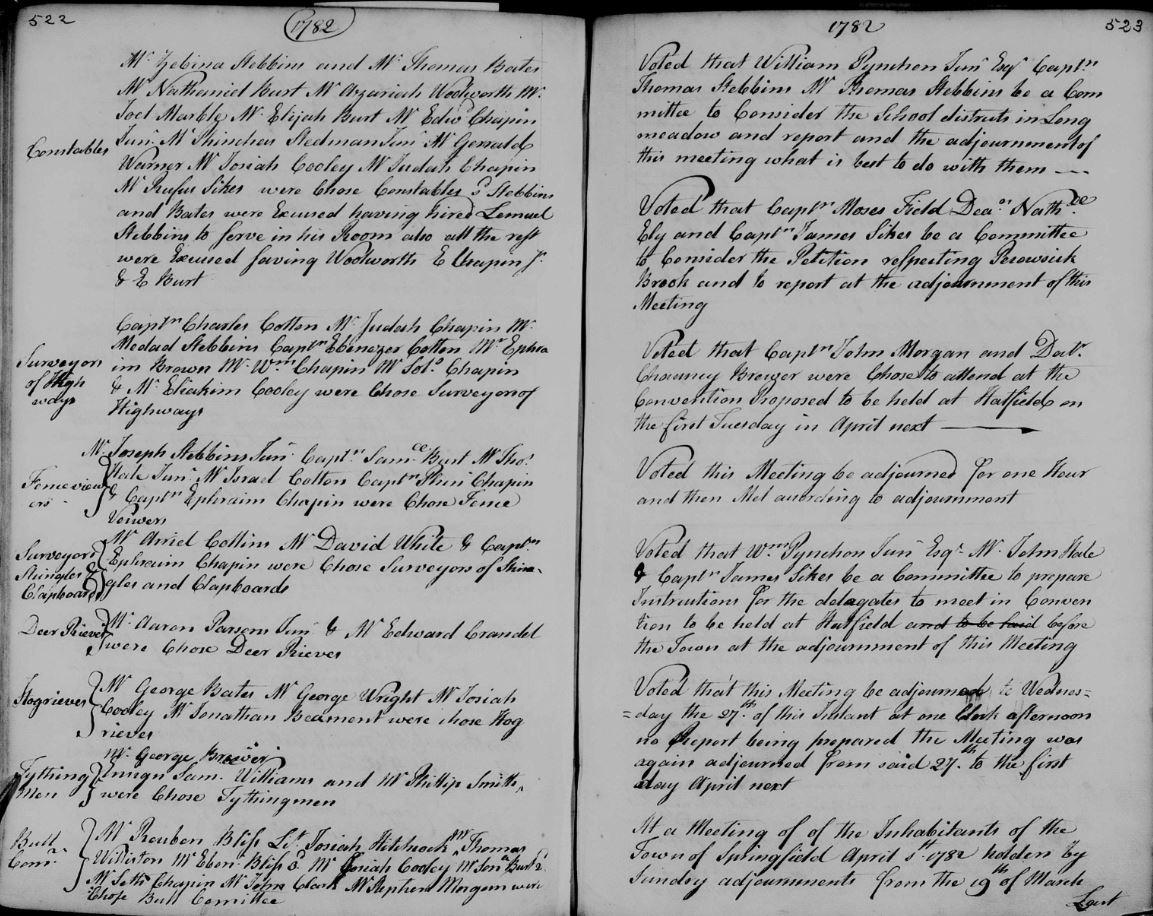 522
1782
Mr. Zebina Stebbins and Mr. Thomas Bates
Mr Nathaniel Burt Mr Azariah Woolworth Mr.
Joel Marble Mr. Elijah Burt Mr Edwd Chapin
Junr. Mr Phinehas Stedman Junr Mr Gerrald
Constables
Warner Mr Josiah Cooley Mr Judah Chapin
Mr Rufus Sikes were Chose Constables sd Stebbins
and Bates were Excused having hired Lemuel
Stebbins to serve in his Room also all the rest
were Excused saving Woolworth E Chapin Jr.
& E Burt
Captn Charles Cotton Mr. Judah Chapin Mr.
Medad Stebbins Captn Ebenezer Cotton Mr Ephra
Surveyors
of High
ways
im Brown Mr. Wm Chapin Mr Solo. Chapin
& Mr. Eliakim Cooley were Chose Surveyors of
Highways
Mr. Joseph Stebbins Junr. Captn Saml Burt Mr Tho.
Fenceview
ers
Hale Junr. Mr Israel Cotton Captn Phin Chapin
& Captn Ephraim Chapin were Chose Fence
Veiwers
Surveyors
Shingles &
Clapboards
Mr. Ariel Collins Mr David White & Captn.
Ephraim Chapin were Chose Surveyors of Shin-
gles and Clapboards
Deer Rieves
Mr. Aaron Parsons Junr & Mr Edward Crandel
were Chose Deer Rieves
Hogrieves
Mr George Bates Mr George Wright Mr Josiah
Cooley Mr Jonathan Beament were chose Hog
rieves
Tything
Men
Mr. George Brewer
Ensign Sam. Williams and Mr Phillip Smith
were Chose Tythingmen
Butt
Comr.
Mr Reuben Bliss Lt Josiah Hitchcock Mr Thomas
Williston Mr Eben. Bliss 3d Mr Josiah Cooley Mr Jona Burt 2d.
Mr Seth Chapin Mr John Clark Mr Stephen Morgan were
Chose Butt Comittee
1782
523
Voted that William Pynchon Junr Esqr Captn
Thomas Stebbins Mr Thomas Stebbins be a Com
mittee to Consider the School districts in Long
meadow and report and the adjournment of
this meeting what is best to do with them
Voted that Captn Moses Field Deacn Nathll
Ely and Captn James Sikes be a Committee
to Consider the Petition respecting Pecowsick
Brook and to report at the adjournment of this
Meeting
Voted that Captn John Morgan and Dctr.
Chauncy Brewer were Chose to attend at the
Convention Proposed to be held at Hatfield on
the first Tuesday in April next
Voted this Meeting be adjourned for one Hour
and then Met according to adjournment
Voted that Wm Pynchon Junr Esqr. Mr. John Hale
& Captn James Sikes be a Committee to prepare
Instructions for the delegates to meet in Conven
tion to be held at Hatfield and to be laid before
the Town at the adjournment of this Meeting
Voted that this Meeting be adjourned to Wednes=
=day the 27th of this Instant at one Clock afternoon
no Report being prepared the Meeting was
again adjourned from said 27th. to the first
day April next
At a Meeting of of the Inhabitants of the
Town of Springfield April 1st. 1782 holden by
Sundry adjournments from the 19th of March
Last